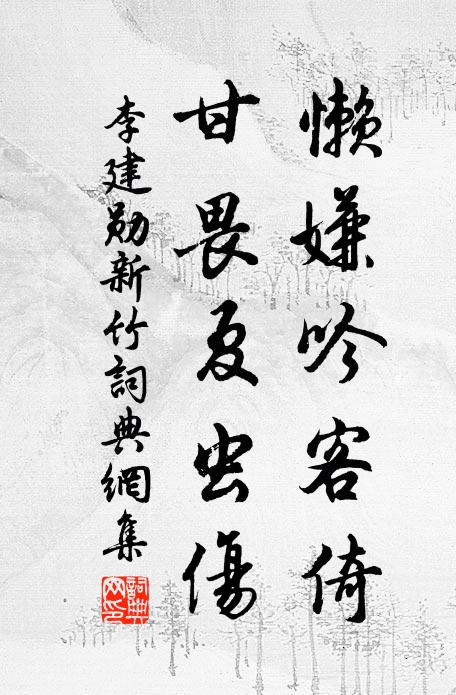 懶嫌吟客倚
甘畏夏虫傷
李建勋新竹詞典網集